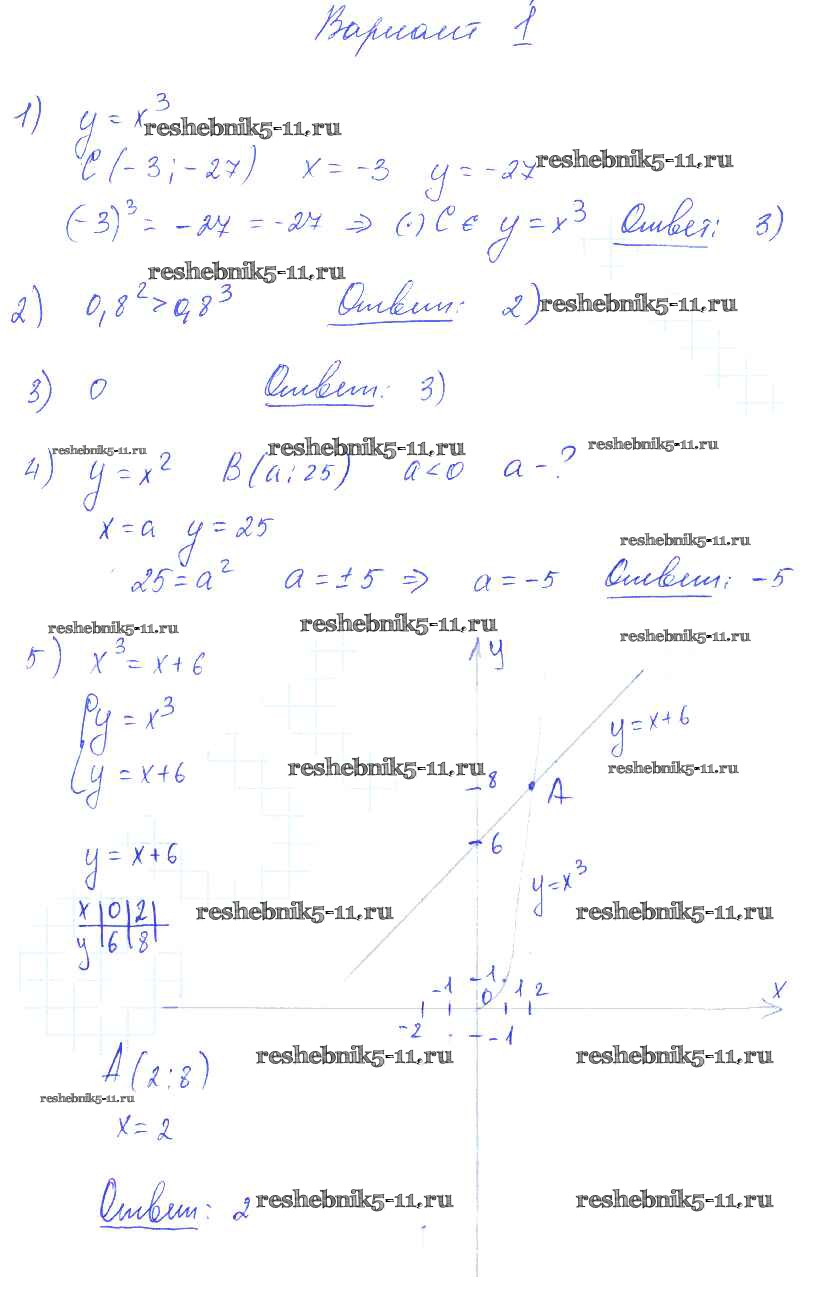 Вариант 1
1) y = x³
reshebnik5-11.ru
C(-3; -27) x = -3 y = -27
reshebnik5-11.ru
(-3)³ = -27 = -27 ⇒ (·) C ∈ y = x³ Ответ: 3)
reshebnik5-11.ru
2) 0,8² > 0,8³ Ответ: 2)
reshebnik5-11.ru
3) 0 Ответ: 3)
reshebnik5-11.ru reshebnik5-11.ru reshebnik5-11.ru
4) y = x² B(a; 25) a < 0 a - ?
x = a y = 25
reshebnik5-11.ru
25 = a² a = ±5 ⇒ a = -5 Ответ: -5
reshebnik5-11.ru reshebnik5-11.ru reshebnik5-11.ru
5) x³ = x + 6
y = x³
y = x + 6
y = x + 6
x | 0 | 2 |
y | 6 | 8 |
A(2; 8)
x = 2
Ответ: 2
y
y = x + 6
reshebnik5-11.ru reshebnik5-11.ru
8 A
6
y = x³
reshebnik5-11.ru reshebnik5-11.ru
-1 1 0 1 2 x
-2 -1
reshebnik5-11.ru reshebnik5-11.ru
reshebnik5-11.ru
reshebnik5-11.ru reshebnik5-11.ru